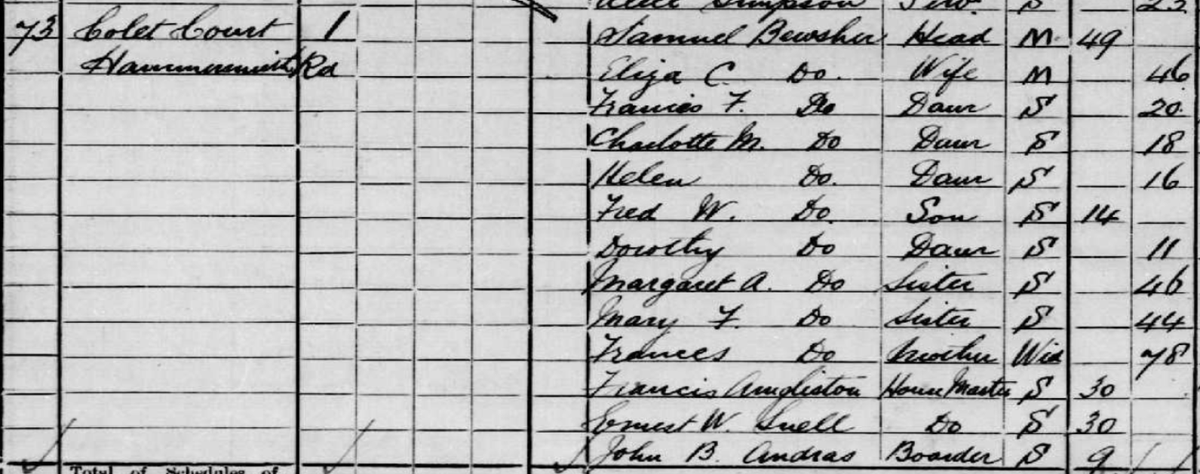 Simpson Serv. S 23
73 Colet Court 1 Samuel Bewsher Head M 49
Hammersmith Rd Eliza C. Do. Wife M 46
Frances F. Do Daur S 20
Charlotte M. Do Daur S 18
Helen Do. Daur S 16
Fred W. Do. Son S 14
Dorothy Do Daur S 11
Margaret A. Do Sister S 46
Mary F. Do Sister S 44
Frances Do Mother Wid 78
Francis House Master S 30
Ernest W. Snell Do S 30
John B. Andras Boarder S 9
Total of Schedules of